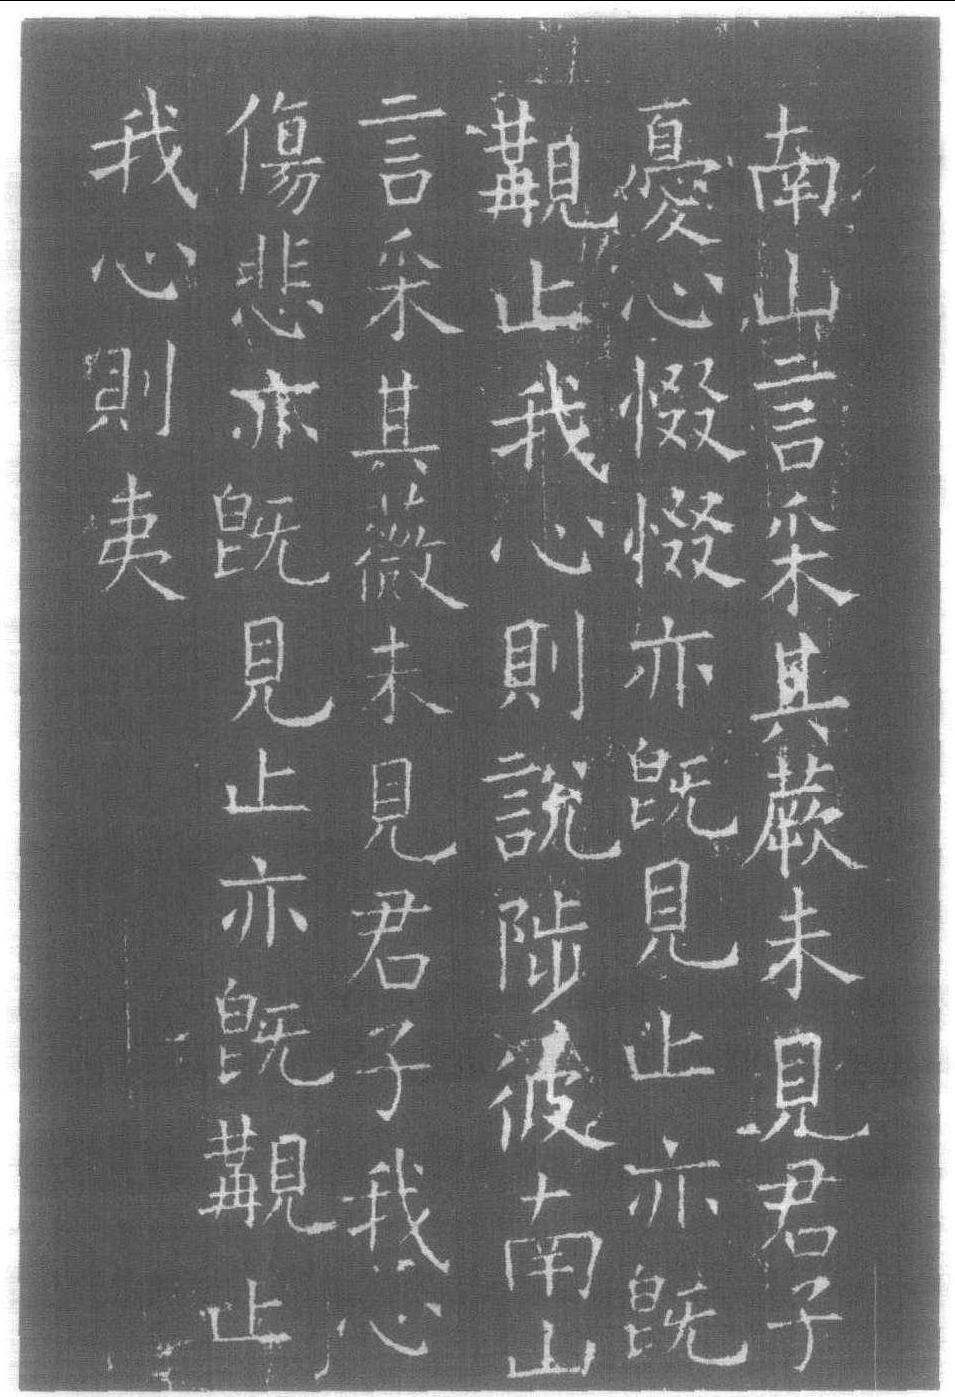 南山言采其蕨未見君子
憂心惙惙亦既見止亦既
覯止我心則說陟彼南山
言采其薇未見君子我心
傷悲亦既見止亦既覯止
我心則夷